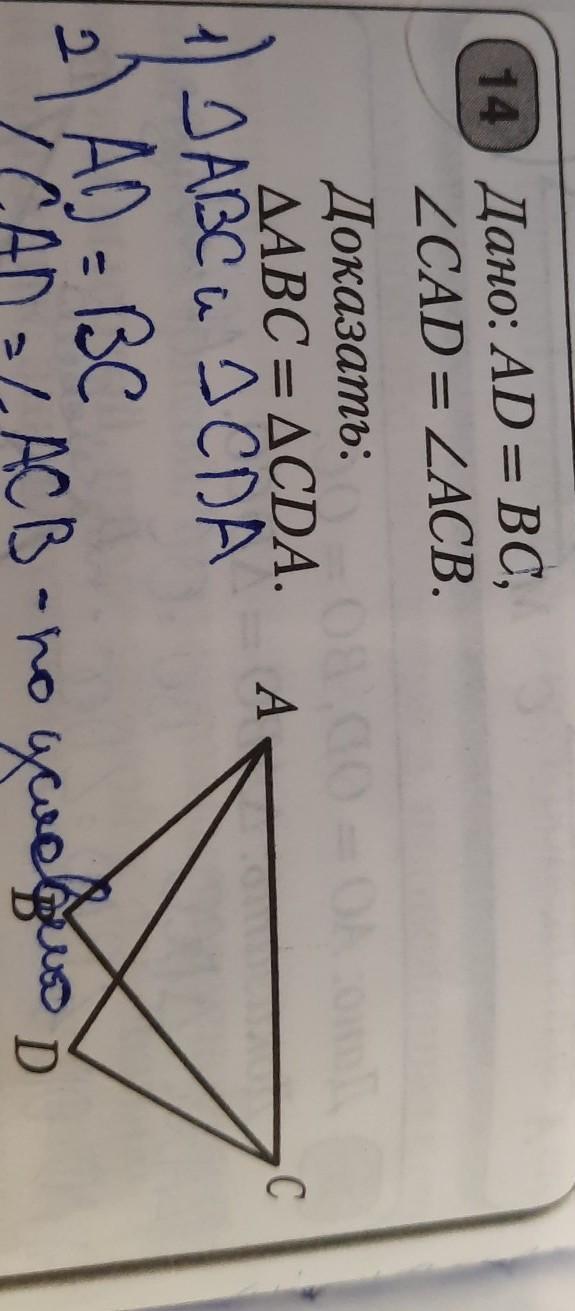 14 Дано: AD = BC,
∠CAD = ∠ACB.
Доказать:
△ABC = △CDA.
1) △ABC и △CDA
2) AD = BC
∠CAD = ∠ACB - по условию
A
B
D
C